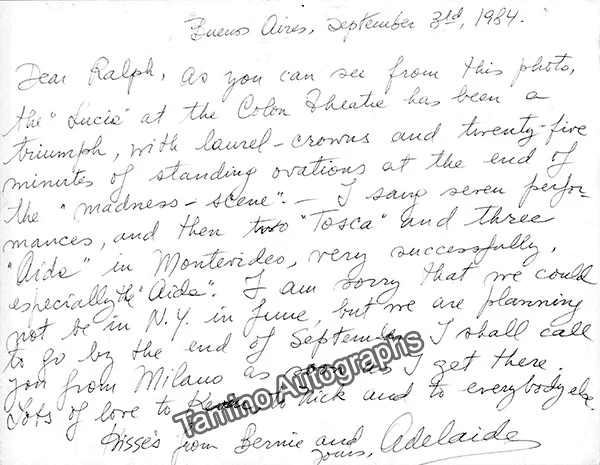 Buenos Aires, September 3rd, 1984.
Dear Ralph, as you can see from this photo,
the "Lucia" at the Colon Theatre has been a
triumph, with laurel-crowns and twenty-five
minutes of standing ovations at the end of
the "madness-scene". - I sang seven perfor-
mances, and then two "Tosca" and three
"Aida" in Montevideo, very successfully,
especially the "Aida". I am sorry that we could
not be in N.Y. in June, but we are planning
to go by the end of September. I shall call
you from Milano as soon as I get there.
Lots of love to to Nick and to everybody else.
Kisses from Bernie and
yours, Adelaide
Tamino Autographs